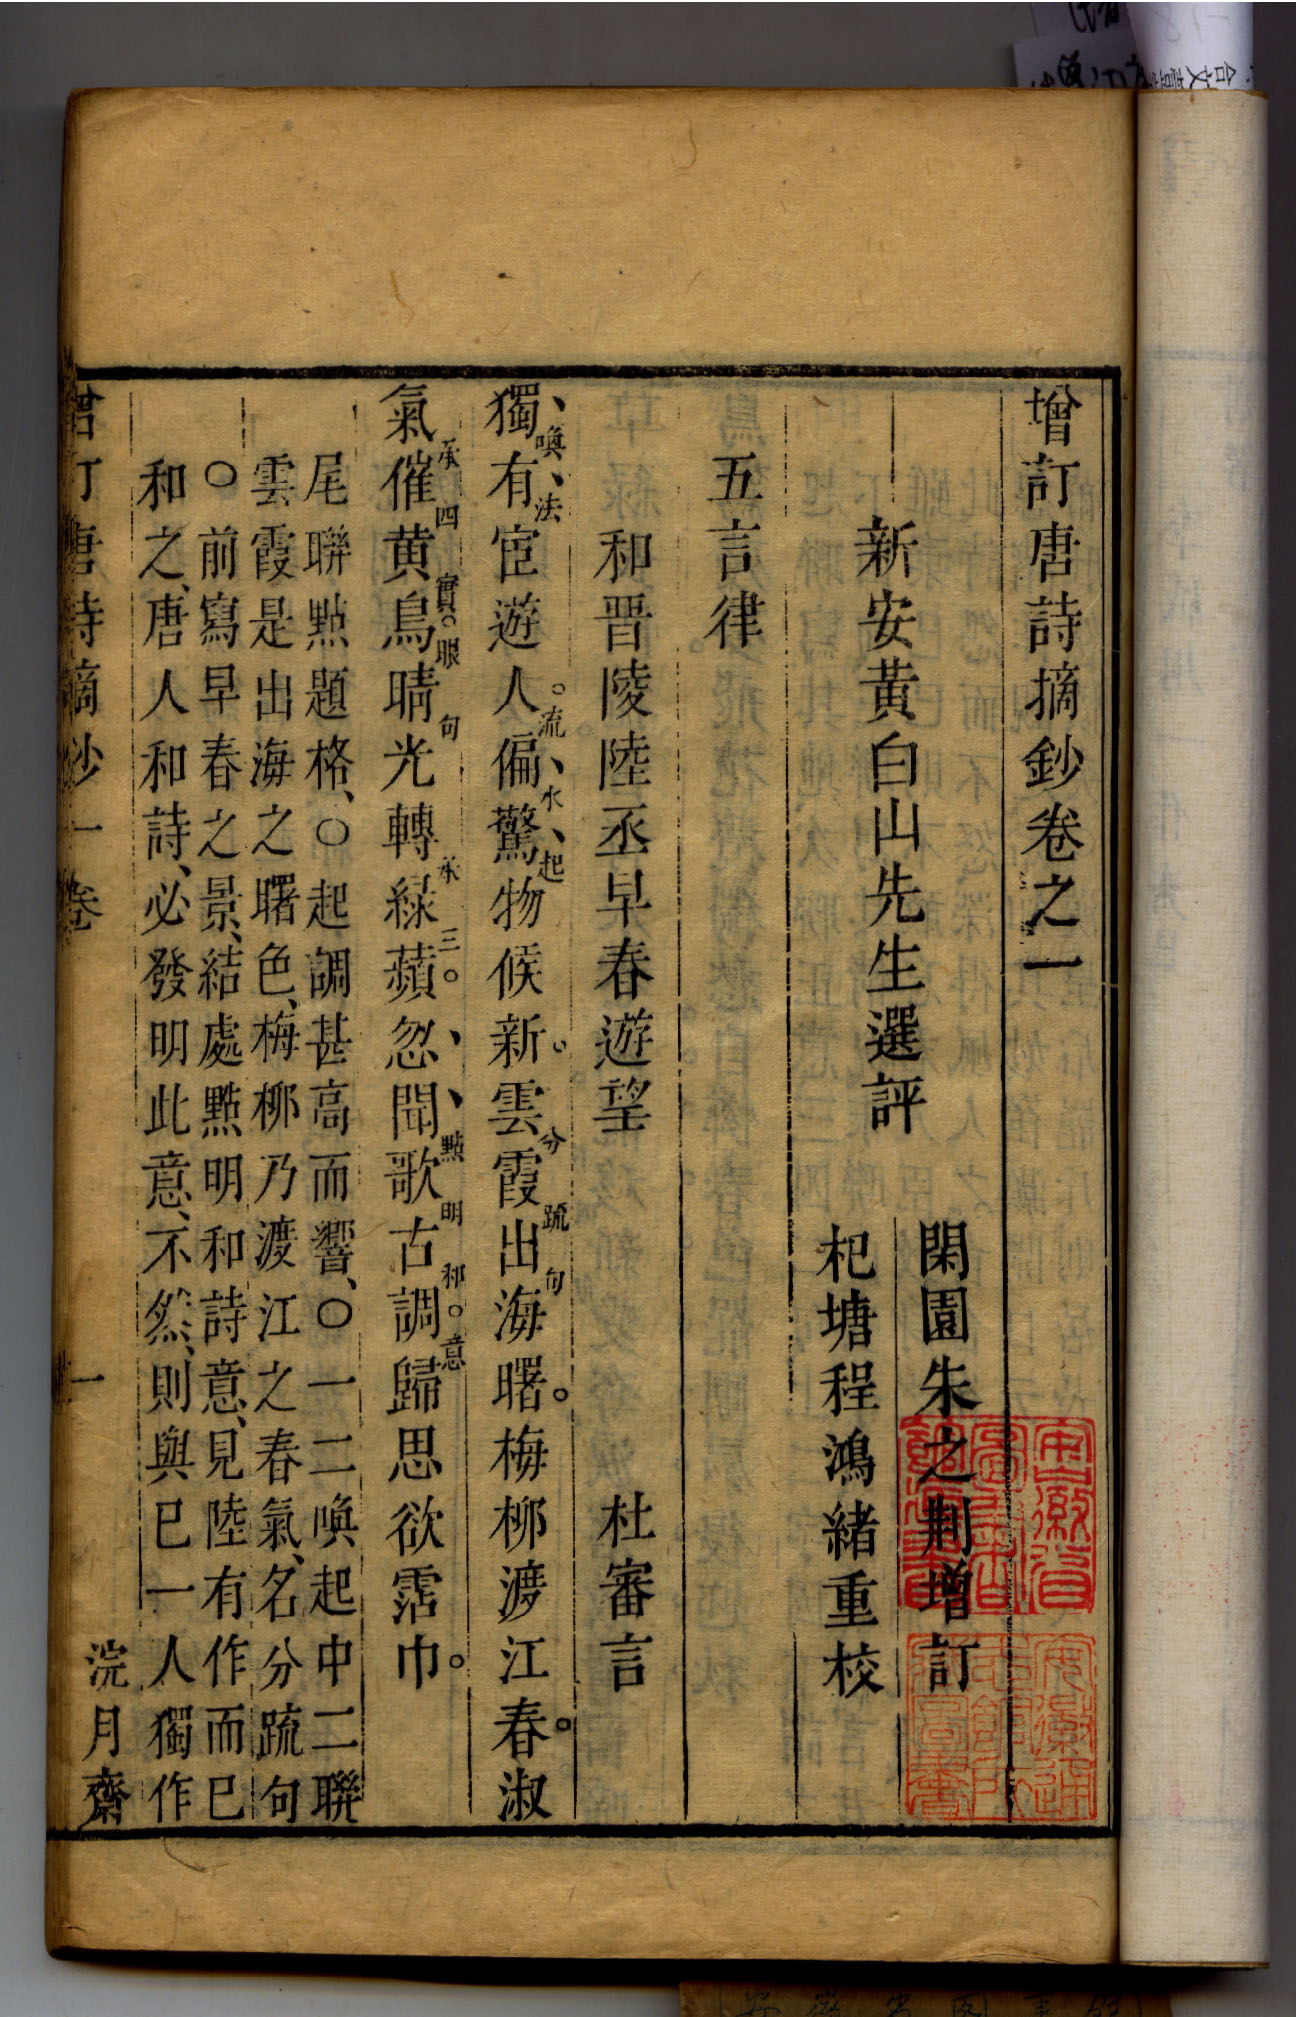 增訂唐詩摘鈔卷之一
新安黃白山先生選評
閑園朱之荆增訂
杞塘程鴻緒重校
五言律
和晋陵陸丞早春遊望
杜審言
獨有宦遊人偏驚物候新。雲霞出海曙。梅柳渡江春。淑
喚法 流水起 分疏句
氣催黄鳥晴光轉緑蘋忽聞歌古調歸思欲霑巾。
承四 實眼句 承三 點明和意
尾聯點題格、○起調甚高而響、○一二喚起中二聯
雲霞是出海之曙色、梅柳乃渡江之春氣、名分疏句
○前寫早春之景、結處點明和詩意、見陸有作而已
和之、唐人和詩、必發明此意、不然、則與已一人獨作
增訂唐詩摘鈔一卷
一
浣月齋